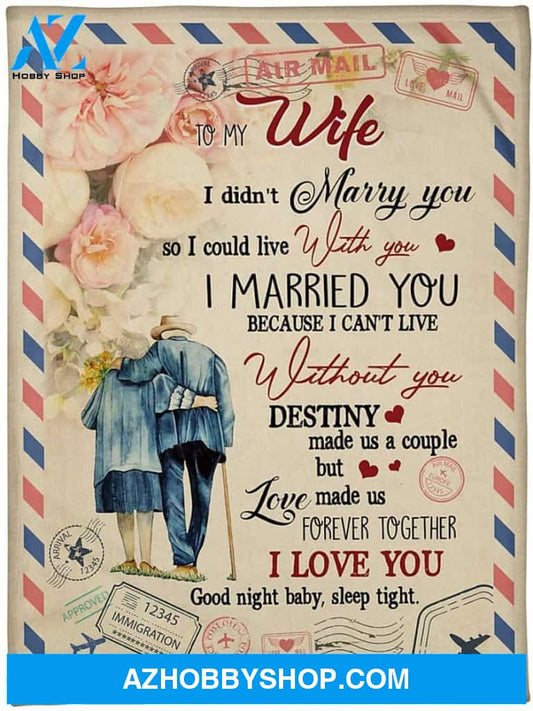 AZ
HOBBY SHOP
AIR MAIL
LOVE MAIL
TO MY Wife
I didn't Marry you
so I could live With you
I MARRIED YOU
BECAUSE I CAN'T LIVE
Without you
DESTINY
made us a couple
but
Love made us
FOREVER TOGETHER
I LOVE YOU
Good night baby, sleep tight.
AIR MAIL
EUROPE
12345
ARRIVAL
12345
APPROVED
12345
IMMIGRATION
AZHOBBYSHOP.COM